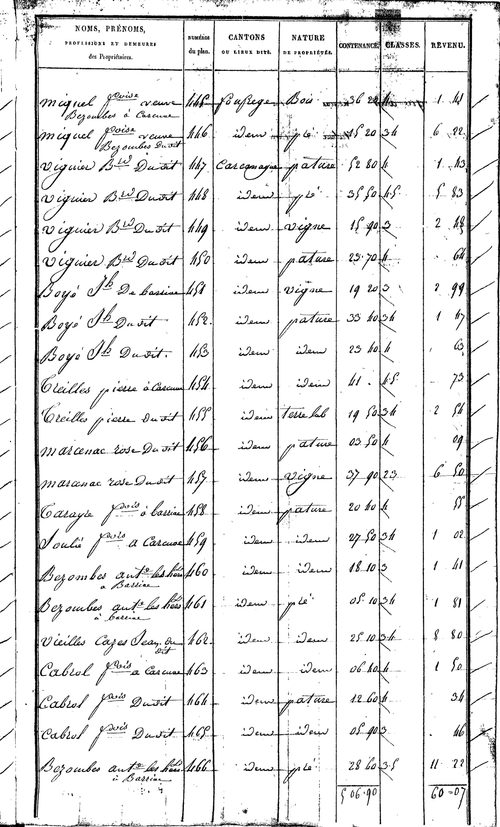 NOMS, PRÉNOMS, PROFESSIONS ET DEMEURES des Propriétaires. NUMÉROS du plan. CANTONS OU LIEUX DITS. NATURE DE PROPRIÉTÉS. CONTENANCE. CLASSES. REVENU.
Miquel f.coise veuve 445 Bois 36 20 4 1 41
Bezombes à Carcuac
Miquel f.coise veuve 446 idem pré 15 20 34 6 22
Bezombes du dit
Viguier B.rd Du dit 447 Carcanague pature 52 80 4 1 43
Viguier B.rd Du dit 448 idem pré 35 50 45 5 83
Viguier B.rd Du dit 449 idem vigne 15 90 3 2 48
Viguier B.rd Du dit 450 idem pature 23 70 4 64
Boyé J.h De barriac 451 idem vigne 19 20 3 2 99
Boyé J.h Du dit 452 idem pature 33 40 34 1 47
Boyé J.h Du dit 453 idem idem 23 40 4 63
Treilles pierre à Carcuac 454 idem idem 41 . 45 73
Treilles pierre du dit 455 idem terre lab 19 50 34 2 54
marcenac rose Du dit 456 idem pature 03 50 4 09
marcenac rose Du dit 457 idem vigne 37 90 23 6 50
Tarayre f.cois à barriac 458 idem pature 20 40 4 55
Soulié f.cois a Carcuac 459 idem idem 27 50 34 1 02
Bezombes ant.e les hers 460 idem idem 18 10 3 1 41
a Barriac
Bezombes ant.e les hers 461 idem pré 05 10 34 1 81
à barriac
Vieilles Cazes Jean du 462 idem idem 25 10 34 8 80
dit
Cabrol f.cois a Carcuac 463 idem idem 06 40 4 1 50
Cabrol f.cois Du dit 464 idem pature 12 60 4 34
Cabrol f.cois Du dit 465 idem idem 05 90 3 46
Bezombes ant.e les hers 466 idem pré 28 60 35 11 22
à Barriac
5 06 90 60 07